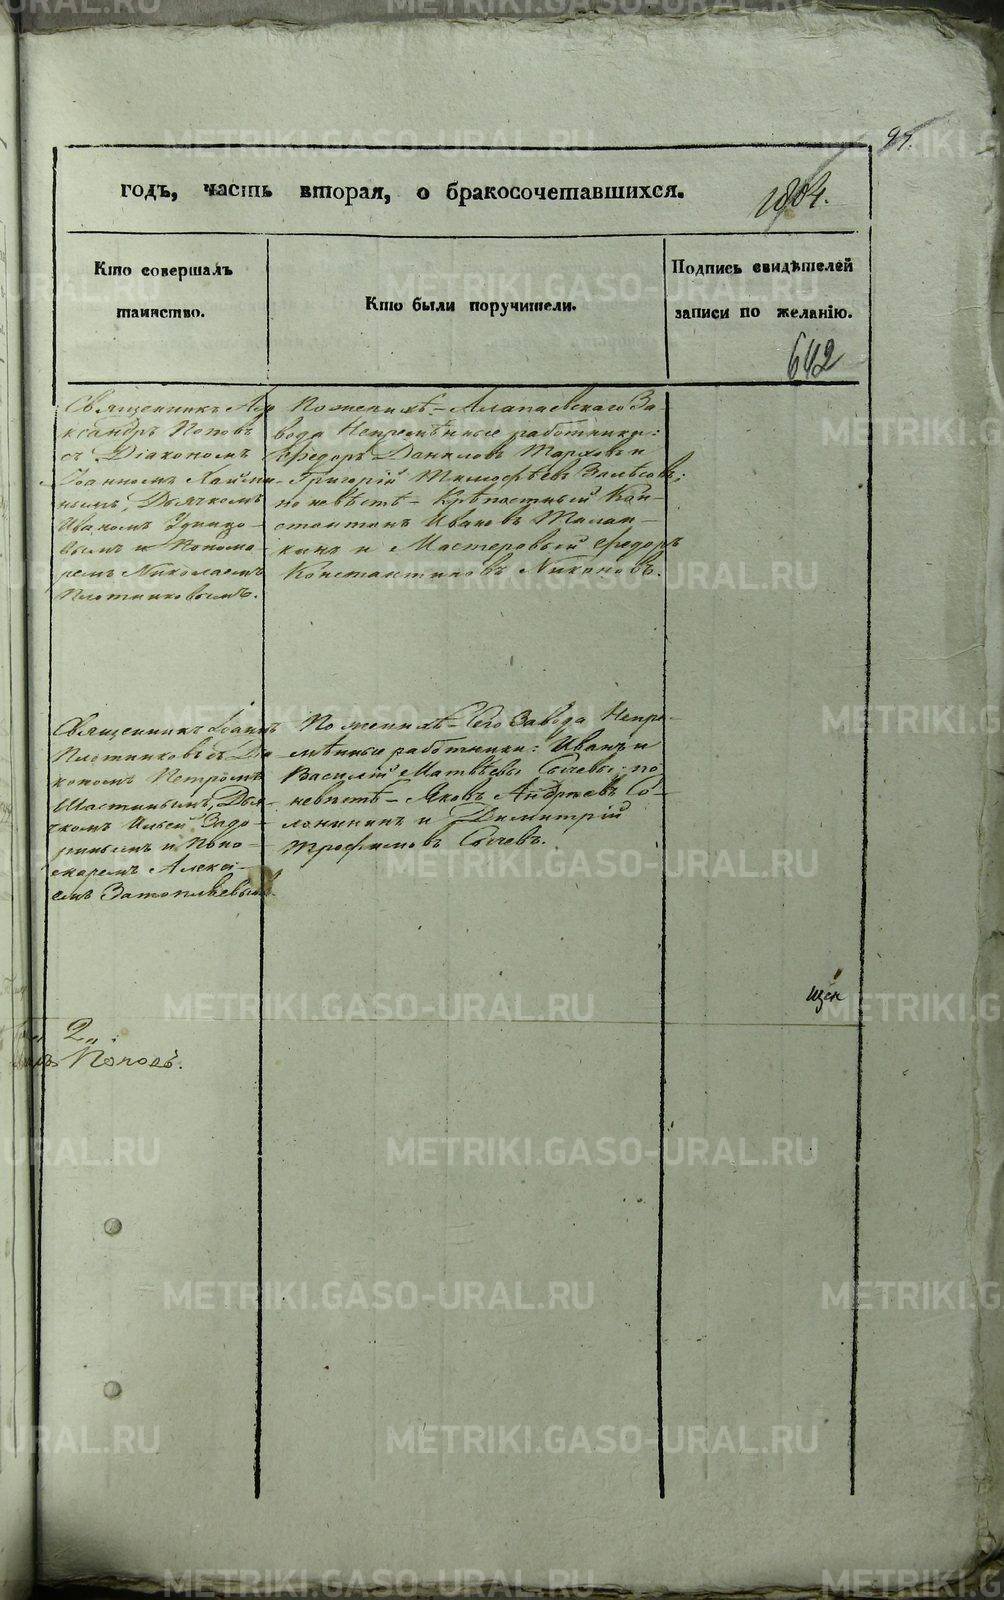 97.
годъ, часть вторая, о бракосочетавшихся.
Кто совершалъ
таинство.
Кто были поручители.
Подпись свидѣтелей
записи по желанію.
642
Священникъ Але
ксандръ Поповъ
съ Діакономъ
Іоанномъ
нымъ, Дьячкомъ
Иваномъ Удинцо-
вымъ и Понома-
ремъ Николаемъ
Плотниковымъ.
По женихѣ – Алапаевскаго За-
вода Непремѣнные работники:
Федоръ Даниловъ Тарховъ и
Григорій Тимофѣевъ
по невѣстѣ – Крѣпостный Кон-
стантинъ Ивановъ Талан-
кинъ и Мастеровый Федоръ
Константиновъ Никоновъ.
Священникъ Іоаннъ
Плотниковъ съ Діа
кономъ Петромъ
Шастинымъ, Дья-
чкомъ Ильей Задо-
ринымъ и Поно-
маремъ Алексѣ-
емъ Затопляевымъ.
По женихѣ – Сего Завода Непре-
мѣнные работники: Иванъ и
Василій Матвѣевы Сычевы; по
невѣстѣ – Яковъ Андреевъ Со-
лонининъ и Димитрій
Трофимовъ Сычевъ.
2.
Поповъ.
METRIKI.GASO-URAL.RU